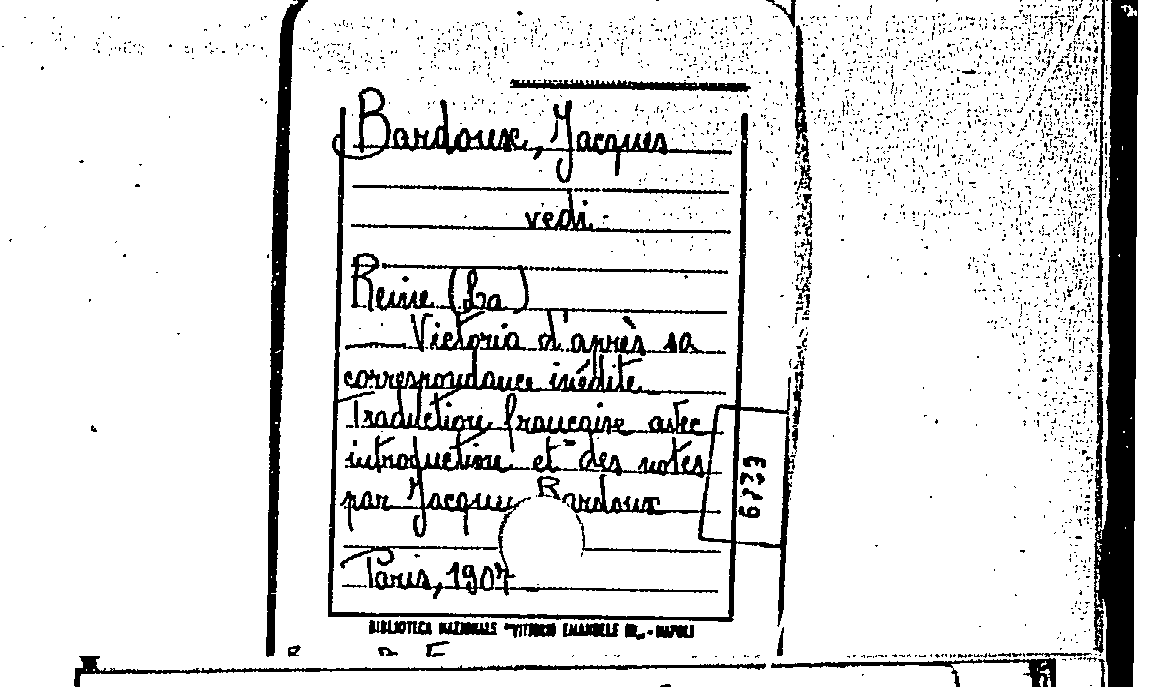 Bardoux, Jacques
vedi
Reine (La)
Victoria d'après sa
correspondance inédite
Traduction française avec
introduction et des notes
par Jacques Bardoux
Paris, 1907
6779
BIBLIOTECA NAZIONALE "VITTORIO EMANUELE III" - NAPOLI